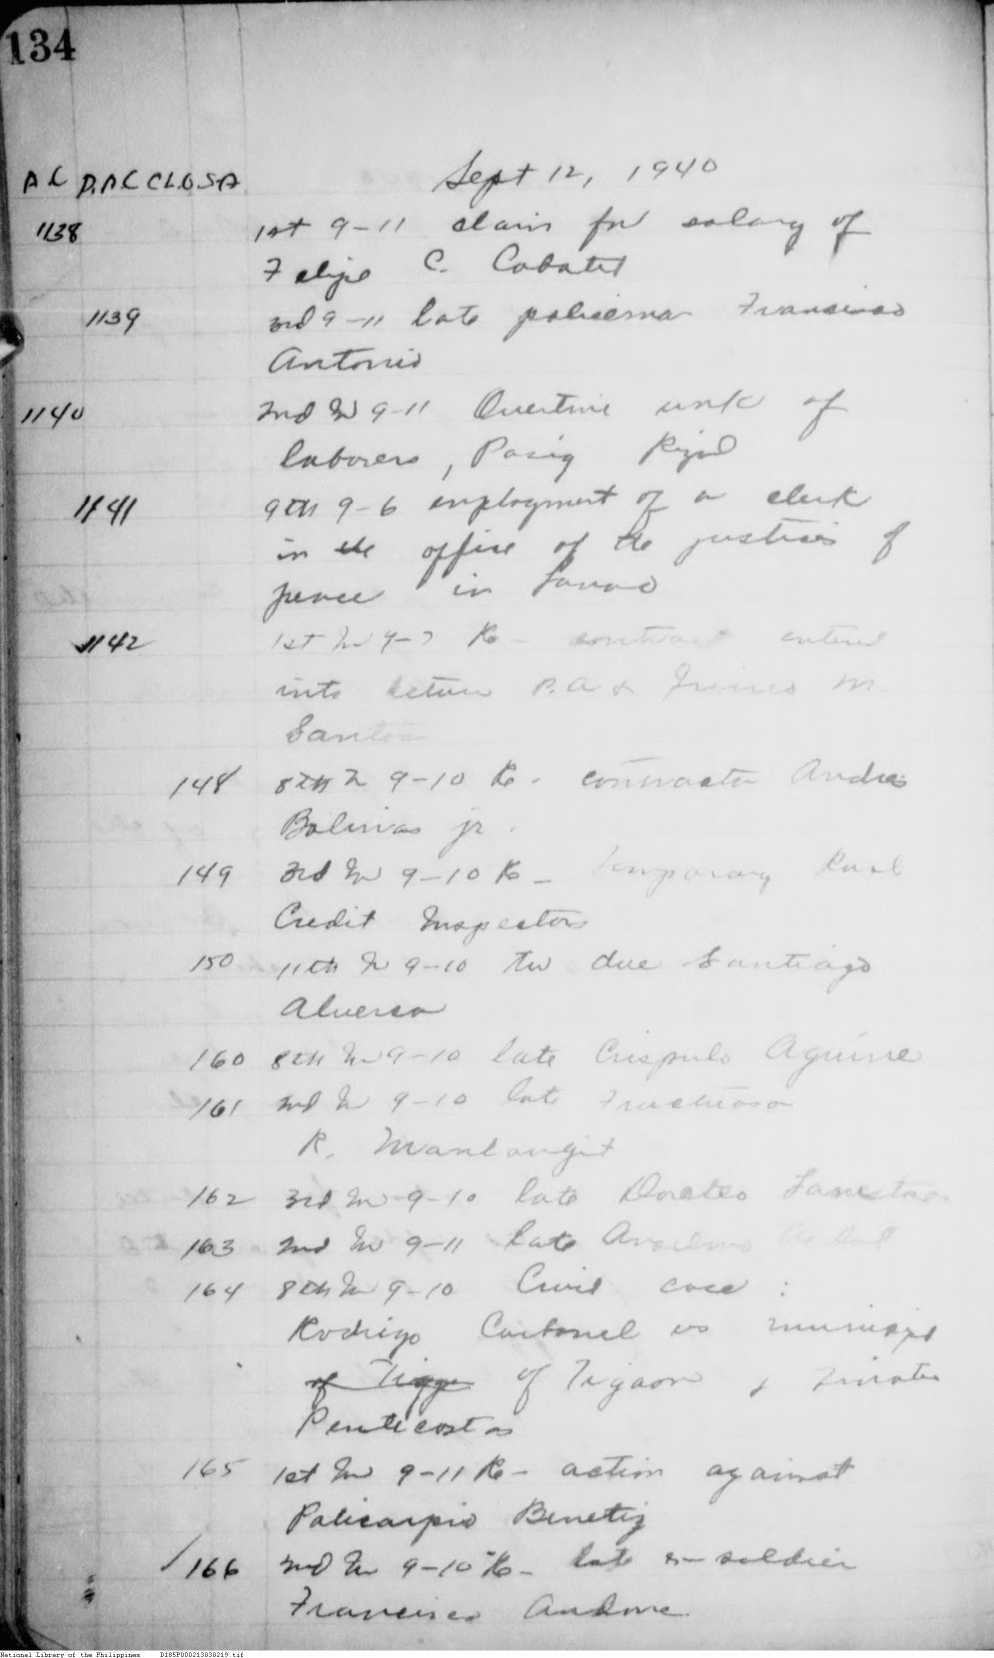 134
Sept 12, 1940
AC D.AC CLOSA
1138 1st 9-11 claim for salary of
Felipe C. Cabatit
1139 3rd 9-11 late policeman Francisco
Antonio
1140 2nd In 9-11 Overtime work of
laborers, Pasig Rizal
1141 9th 9-6 employment of a clerk
in the office of the justices of
peace in Lanao
1142 1st In 9-7 Re - contract entered
into between P.A &
Santos
148 8th In 9-10 Re - contractor Andres
Bolinas jr.
149 3rd In 9-10 Re - Temporary Rural
Credit Inspectors
150 11th In 9-10 tw due Santiago
160 8th In 9-10 late Crispulo Aguirre
161 2nd In 9-10 late Fructuoso
R. Manlangit
162 3rd In 9-10 late
163 2nd In 9-11 late Anselmo
164 8th In 9-10 Civil case :
Rodrigo Carbonel vs municipal
of of Tigaon &
Pentecostes
165 1st In 9-11 Re - action against
Policarpio
166 2nd In 9-10 Re - late ex-soldier
Francisco
National Library of the Philippines D185P000213838219.tif